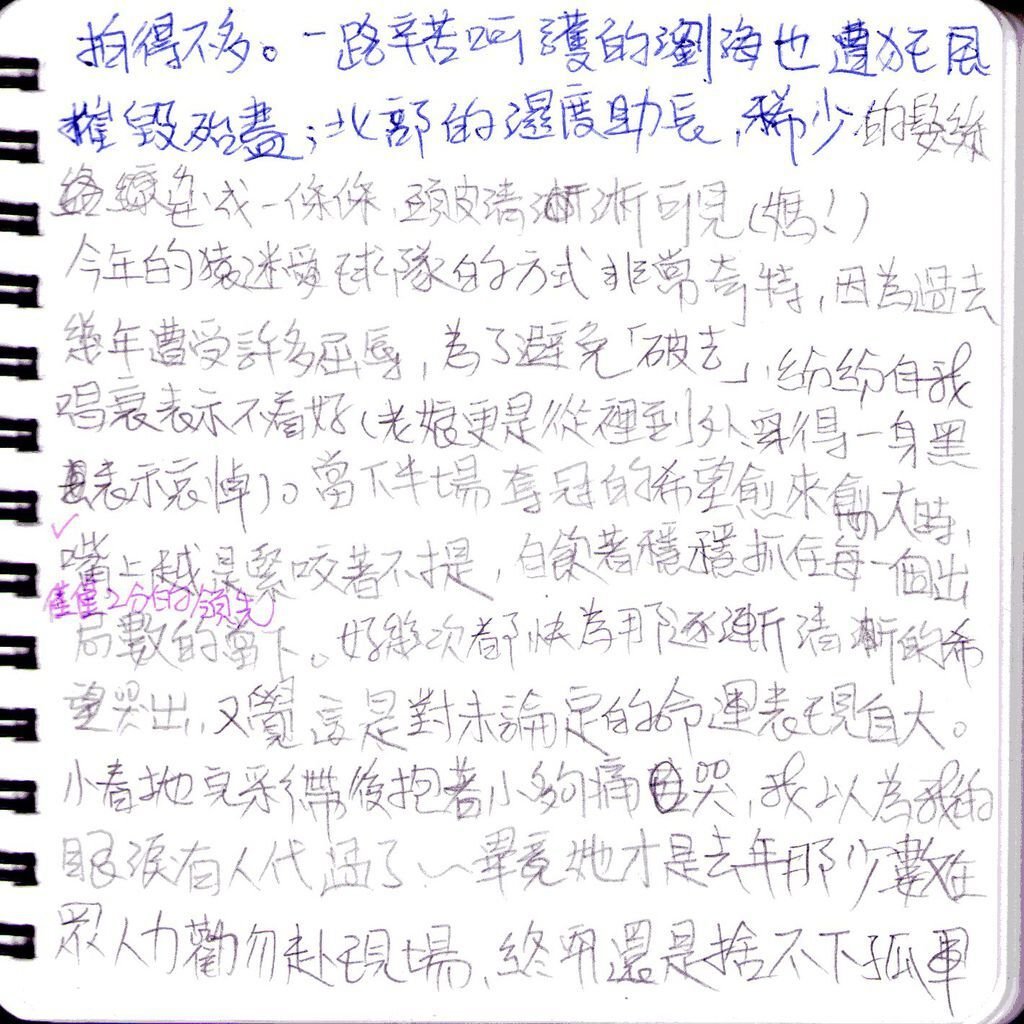 拍得不多。一路辛苦呵護的瀏海也遭狂風
摧毀殆盡；北部的濕度助長，稀少的髮絲
成一條條，頭皮清晰可見（媽！）
今年的猿迷愛球隊的方式非常奇特，因為過去
幾年遭受許多屈辱，為了避免「破去」，紛紛自我
唱衰表示不看好（老娘更是從裡到外穿得一身黑
表示哀悼）。當下半場奪冠的希望愈來愈大時，
嘴上越是緊咬著不提，自飲著穩穩抓住每一個出
僅僅2分的領先
局數的當下。好幾次都快為那逐漸清晰的希
望哭出，又覺這是對未論定的命運表現自大。
小春拋完彩帶後抱著小夠痛哭，我以為我的
眼淚有人代過了～畢竟她才是去年那少數在
眾人力勸勿赴現場，終究還是捨不下孤軍